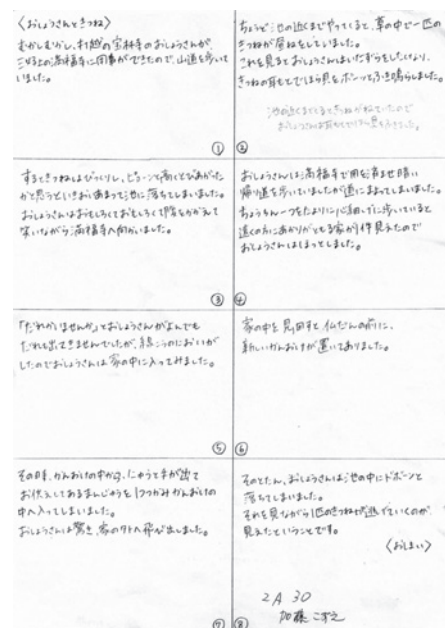 〈おしょうさんときつね〉
むかしむかし、村越の宝林寺のおしょうさんが、
川上の満福寺に用事ができたので、山道を歩いて
いました。
①
ちょうど池の近くまでやってくると、草の中で一匹の
きつねが昼ねをしていました。
これを見るとおしょうさんはいたずらをしたくなり、
きつねの耳もとでほら貝をボーッとふき鳴らしました。
池の近くまでくるときつねがねていたので
おしょうさんは耳もとでほら貝をふきました。
②
するときつねはびっくりし、ピョーンと高くとびあがった
かと思うといきおいあまって池に落ちてしまいました。
おしょうさんはおもしろくておもしろくて腹をかかえて
笑いながら満福寺へ向かいました。
③
おしょうさんは満福寺で用を済ませ暗い
帰り道を歩いていましたが道にまよってしまいました。
ちょうちん一つをたよりに心細げに歩いていると
遠くの方にあかりがともる家が1件見えたので
おしょうさんはほっとしました。
④
「だれかいませんか」とおしょうさんがよんでも
だれも出てきませんでしたが、線こうのにおいが
したのでおしょうさんは家の中に入ってみました。
⑤
家の中を見回すと仏だんの前に、
新しいかんおけが置いてありました。
⑥
その時、かんおけの中から、にゅうと手が出て
お供えしてあるまんじゅうを1つつかみかんおけの
中へ入ってしまいました。
おしょうさんは驚き、家の外へ飛び出しました。
⑦
そのとたん、おしょうさんは池の中にドボーンと
落ちてしまいました。
それを見ながら1匹のきつねが逃げていくのが
見えたということです。
〈おしまい〉
2A 30
加藤 こずえ
⑧